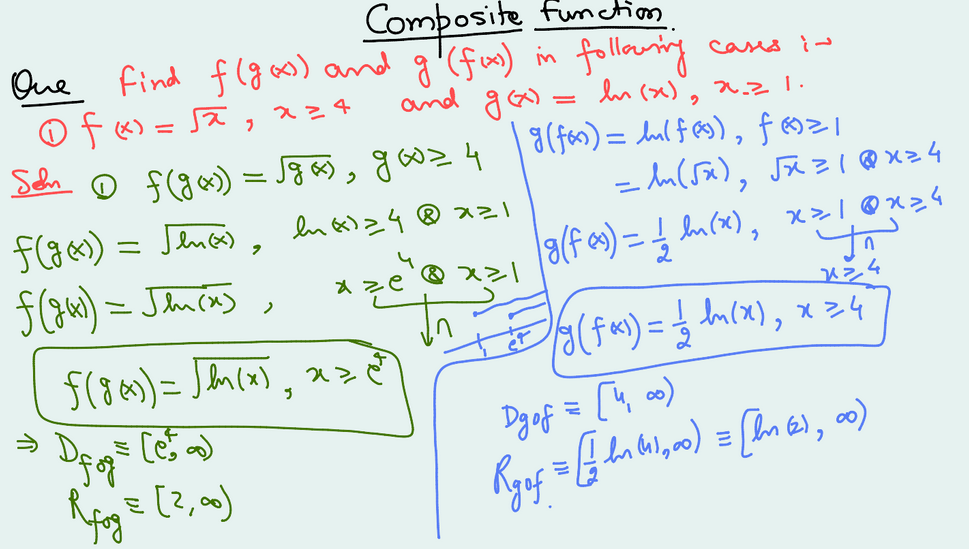 Composite function
Que Find f(g(x)) and g(f(x)) in following cases :-
① f(x) = √x , x ≥ 4 and g(x) = ln(x), x ≥ 1.
Soln ① f(g(x)) = √g(x), g(x) ≥ 4
f(g(x)) = √ln(x) , ln(x) ≥ 4 & x ≥ 1
f(g(x)) = √ln(x) , x ≥ e⁴ & x ≥ 1
∩
1 e⁴
f(g(x)) = √ln(x) , x ≥ e⁴
⇒ D_fog ≡ [e⁴, ∞)
R_fog ≡ [2, ∞)
g(f(x)) = ln(f(x)), f(x) ≥ 1
= ln(√x), √x ≥ 1 & x ≥ 4
g(f(x)) = 1/2 ln(x), x ≥ 1 & x ≥ 4
∩
x ≥ 4
g(f(x)) = 1/2 ln(x), x ≥ 4
D_gof ≡ [4, ∞)
R_gof ≡ [1/2 ln(4), ∞) ≡ [ln(2), ∞)